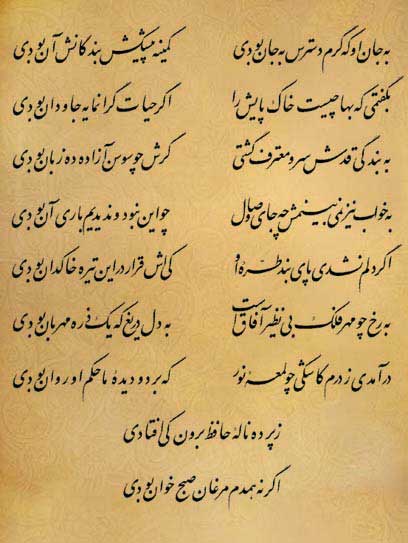 به جان او که گرم دسترس به جان بودی کمینه پیشکش بندگانش آن بودی
بگفتمی که بها چیست خاک پایش را اگر حیات گرانمایه جاودان بودی
به بندگی قدش سرو معترف گشتی گرش چو سوسن آزاده ده زبان بودی
به خواب نیز نمی بینمش چه جای وصال چو این نبود و ندیدیم باری آن بودی
اگر دلم نشدی پای بند طره او کی اش قرار در این تیره خاکدان بودی
به رخ چو مهر فلک بی نظیر آفاق است به دل دریغ که یک ذره مهربان بودی
درآمدی ز درم کاشکی چو لمعه نور که بر دو دیده ما حکم او روان بودی
ز پرده ناله حافظ برون کی افتادی
اگر نه همدم مرغان صبح خوان بودی